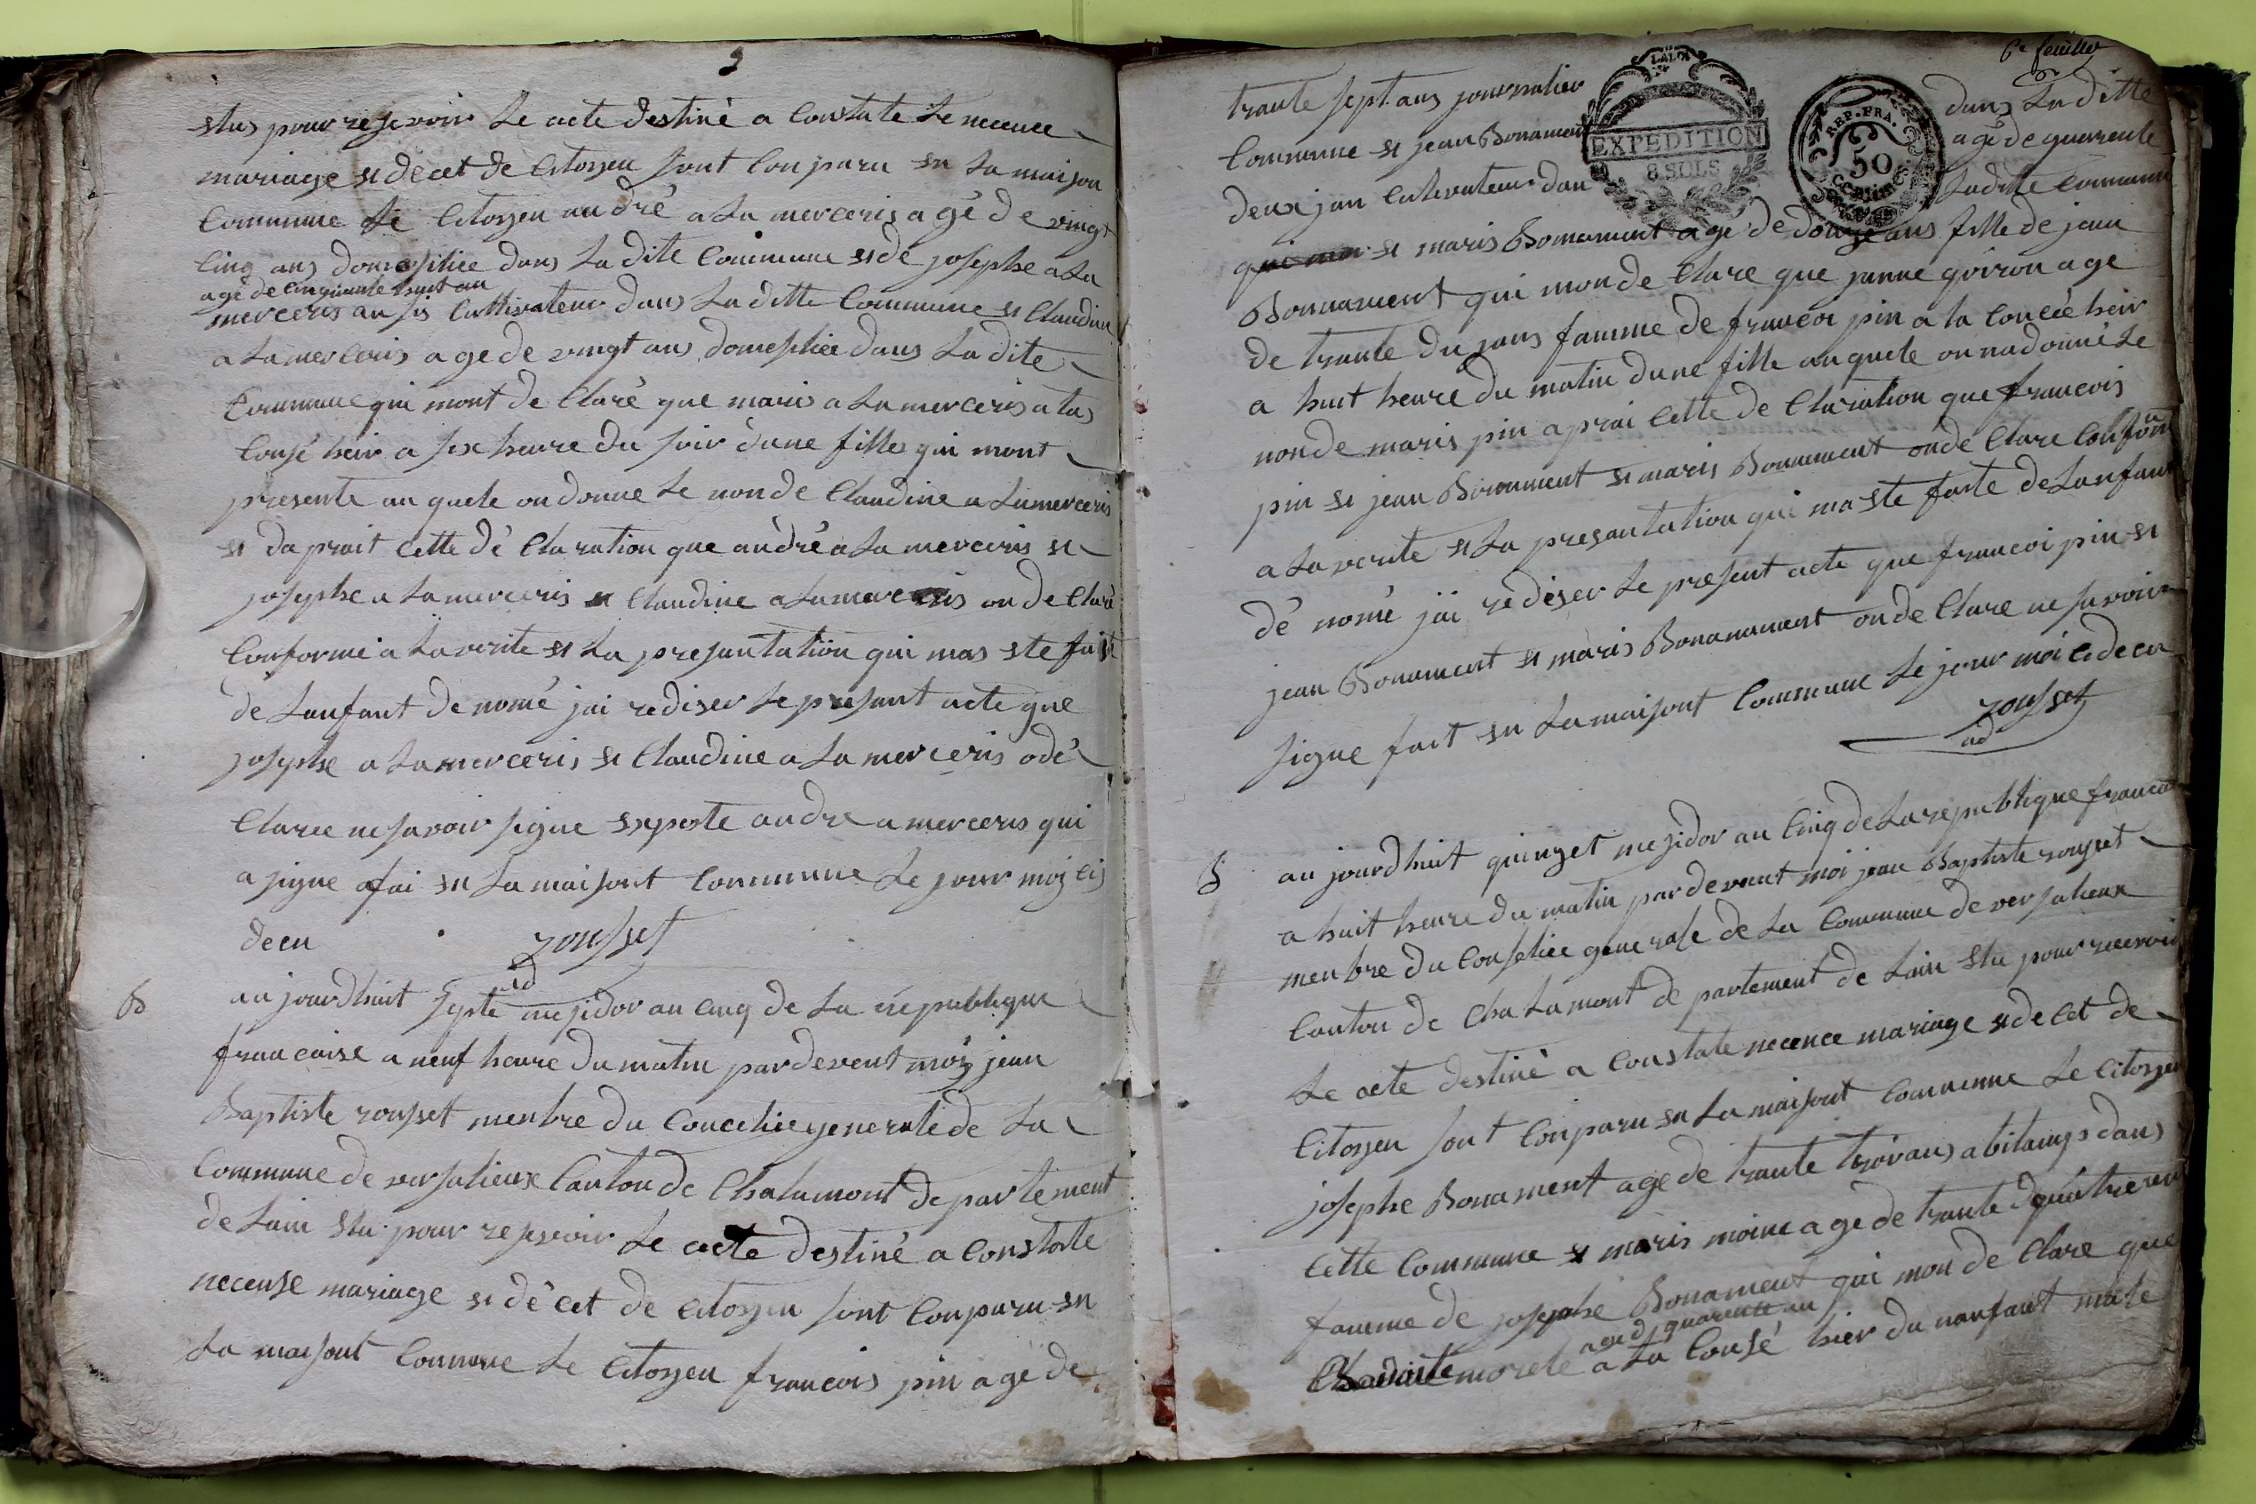 3
stus pour resevoir le acte destiné a Constate le necence
mariage et decet de Citoyen sont Conparu en la maison
Commune le Citoyen andré a la merceris agé de vingt
Cinq ans domesiliée dans la dite Commune et de josephe a la
agé de Cinquante huit an
merceris au sis Cultivateur dans la ditte Commune et Claudine
a la merceris agé de vingt ans domesliée dans la dite
Commune qui mont de Claré que maris a la merceris a las
Cousé heir a six heure du soir dune filles qui mont
presente au quele on donne le non de Claudine a lamerceris
et da prait Cette dé Claration que andré a la merceris et
josephe a la merceris et Claudine a lamerceris on de Claré
Conforme a la verite et la presantatiion qui mas ete fait
de lanfant de nomé jai rediser le presant acte que
josephe a lamerceris et Claudine a la merceris odé
Claree ne savoir signe expeste andre a merceris qui
a signe a fai en la maisont Commune le jour moy eis
de cu
rousset
ad
B
au jourdhuit septe mesidor au Cinq de la republique
francaise a neuf heure du matin pardevent moy jean
Baptiste rousset menbre du Concelie generale de la
Commune de versalieux Canton de Chalamont departement
de lain Stu pour resevoir le acte destiné a Constate
necense mariage et dé cet de Citoyen sont Conparu en
la maisont Commune le Citoyen francois pin agé de
6e feuillet
LA LOI
EXPEDITION
8 SOLS
REP. FRA.
50
CENTIMES
trante sept ans journalier dans la ditte
Commune et jean Bonament agé de quarente
deux jan Cultivateur dan ladite Commune
et maris Bonament agé de douze ans fille de jean
Bonnament qui mon de Clare que janne goiron age
de trante du jans famme de francoi pin a la Concée heir
a huit heure du matin dune fille au quele on na donné le
non de maris pin aprai Cette de Claration que francois
pin et jean Bonument et maris Bonnement on de Clare Confor
a la verite et la presantation qui ma ete faite de lanfant
dé nomé jai rediser le present acte que francoi pin et
jean Bonament et maris Bonamament on de Clare ne savoir
signe fait en la maisont Commune le jour moi e de cu
rousset
ad
B
au jourdhuit quinzet mesidor au Cinq de la republique francai
a huit heure du matin par devent moi jean Baptiste rousset
menbre du Conseliee generale de la Commune de versalieux
Canton de Cha la mont de partement de lain Stu pour recevoir
le acte destiné a Constate necence mariage et de cet de
Citoyen sont Conparu en la maisont Commune le Citoyen
josephe Bonament agé de trante troi ans abitans dans
Cette Commune et maris moine age de trante quatre ans
famme de josephe Bonament qui mon de Clare que
agé d quarente an
morele a la Cousé hier du nanfant male